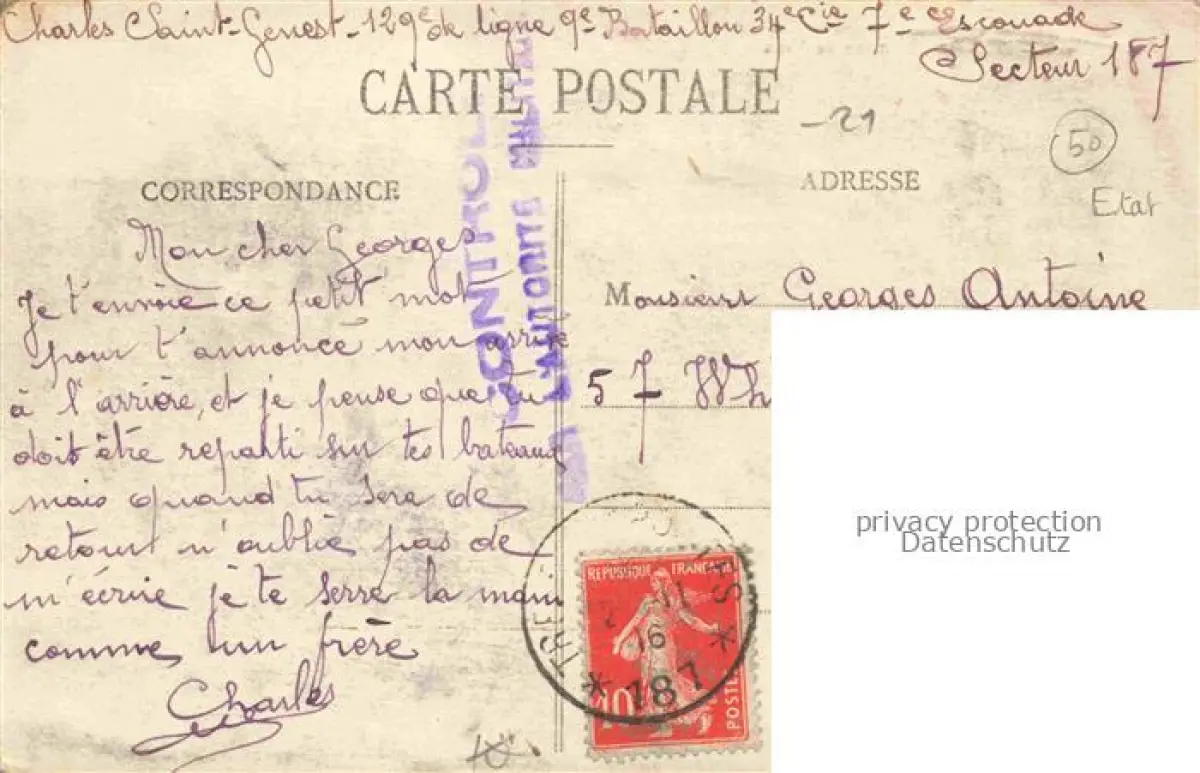 Charles Saint-Genest - 129e de ligne 9e Bataillon 34e Cie 7e Escouade
Secteur 187
CARTE POSTALE
-21
50
Etat
CORRESPONDANCE
ADRESSE
CONTROLE
L'AUTORITE MILITAIRE
Mon cher Georges
Je t'envoie ce petit mot
pour t'annoncé mon arrivé
à l'arrière, et je pense que tu
doit être reparti sur tes bateaux
mais quand tu sera de
retour n'oublie pas de
m'écrire je te serre la main
comme un frère
Charles
Monsieur Georges Antoine
57 Wh
privacy protection
Datenschutz
REPUBLIQUE FRANÇAISE
10
POSTES
16
* 187 *